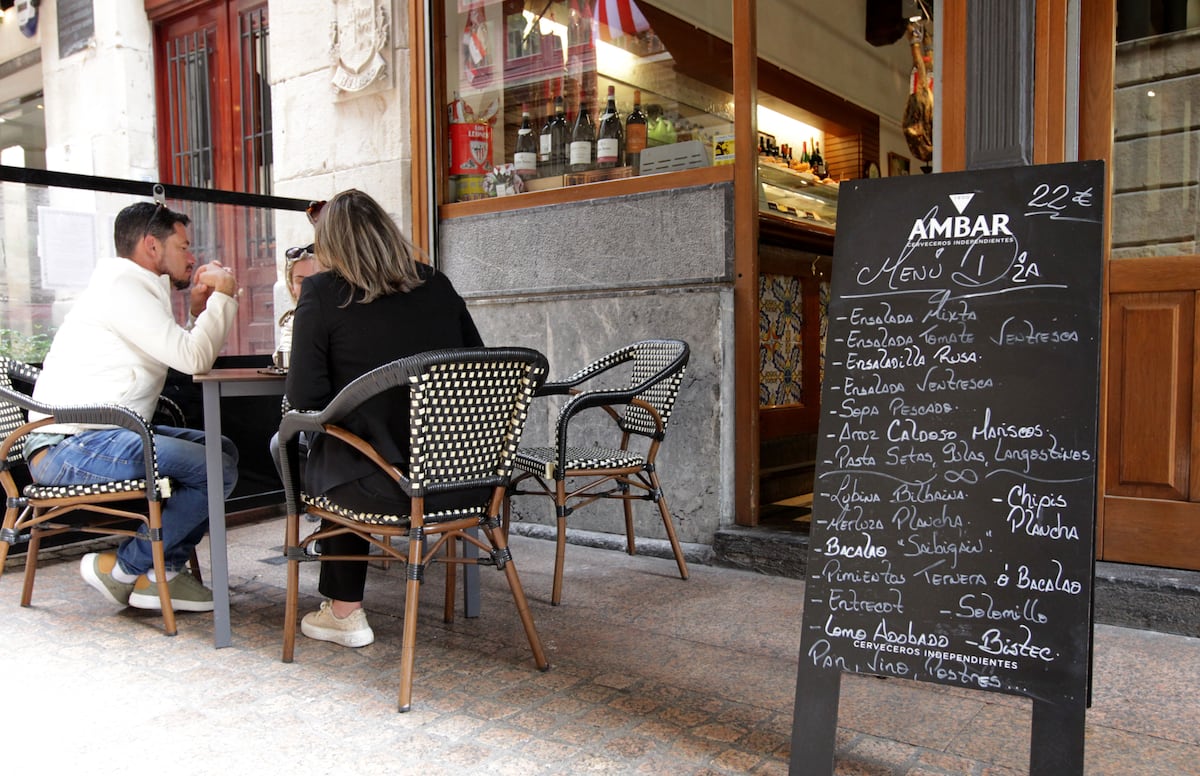 22€
AMBAR
CERVECEROS INDEPENDIENTES
Menú Día
- Ensalada Mixta
- Ensalada Tomate Ventresca
- Ensaladilla Rusa.
- Ensalada Ventresca
- Sopa Pescado.
- Arroz Caldoso Mariscos.
- Pasta Setas, Gulas, Langostinos
- Lubina Bilbaina. - Chipis Plancha
- Merluza Plancha.
- Bacalao
- Pimientos Ternera ó Bacalao
- Entrecot - Solomillo
- Lomo Adobado - Bistec.
CERVECEROS INDEPENDIENTES
Pan, Vino, Postres...